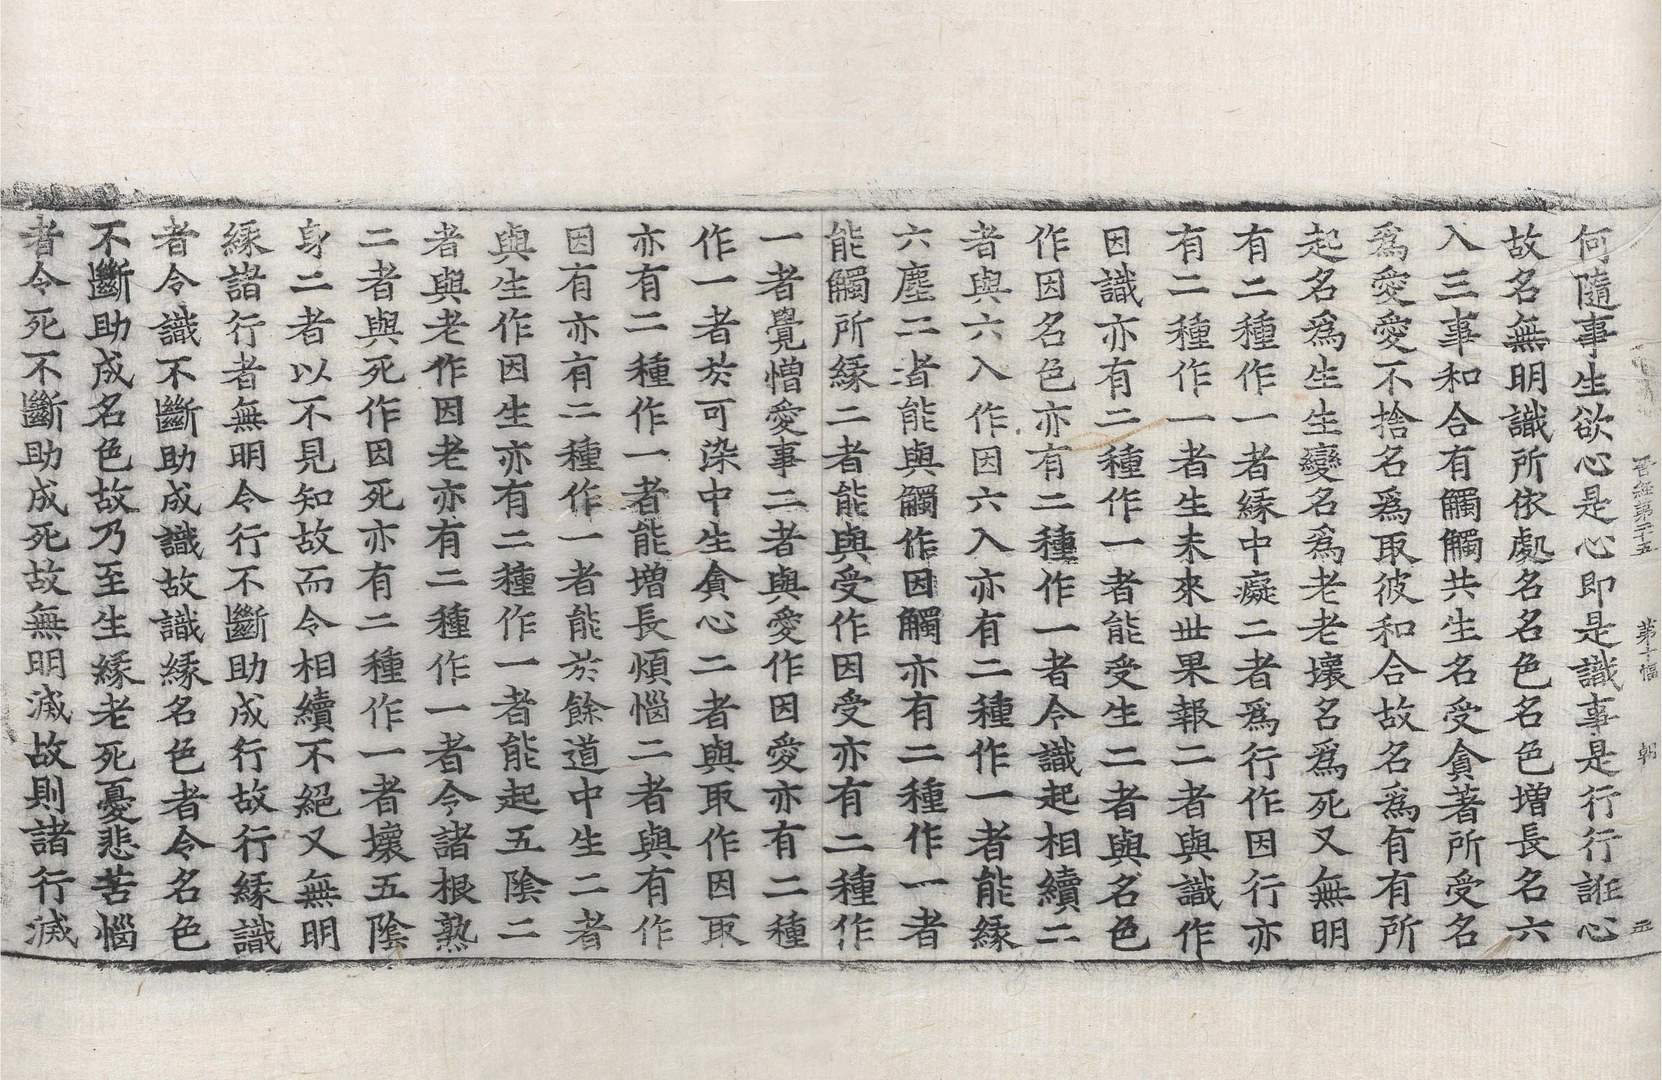 晉經第二十五　第十幅　朝　五
何隨事生欲心是心即是識事是行行誑心
故名無明識所依處名名色名色增長名六
入三事和合有觸觸共生名受貪著所受名
爲愛愛不捨名爲取彼和合故名爲有有所
起名爲生生變名爲老老壞名爲死又無明
有二種作一者緣中癡二者爲行作因行亦
有二種作一者生未來世果報二者與識作
因識亦有二種作一者能受生二者與名色
作因名色亦有二種作一者令識起相續二
者與六入作因六入亦有二種作一者能緣
六塵二者能與觸作因觸亦有二種作一者
能觸所緣二者能與受作因受亦有二種作
一者覺憎愛事二者與愛作因愛亦有二種
作一者於可染中生貪心二者與取作因取
亦有二種作一者能增長煩惱二者與有作
因有亦有二種作一者能於餘道中生二者
與生作因生亦有二種作一者能起五陰二
者與老作因老亦有二種作一者令諸根熟
二者與死作因死亦有二種作一者壞五陰
身二者以不見知故而令相續不絕又無明
緣諸行者無明令行不斷助成行故行緣識
者令識不斷助成識故識緣名色者令名色
不斷助成名色故乃至生緣老死憂悲苦惱
者令死不斷助成死故無明滅故則諸行滅